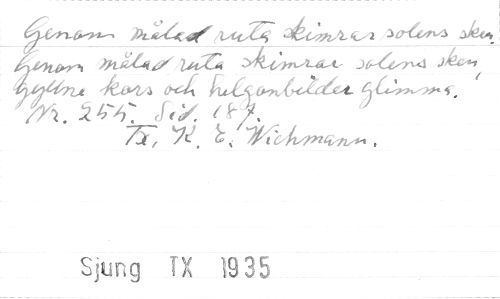 Genom målad ruta skimrar solens sken.
Genom målad ruta skimrar solens sken,
gyllne kors och helgonbilder glimma.
Nr. 255. Sid. 187.
Tx, K. E. Wichmann.
Sjung TX 1935